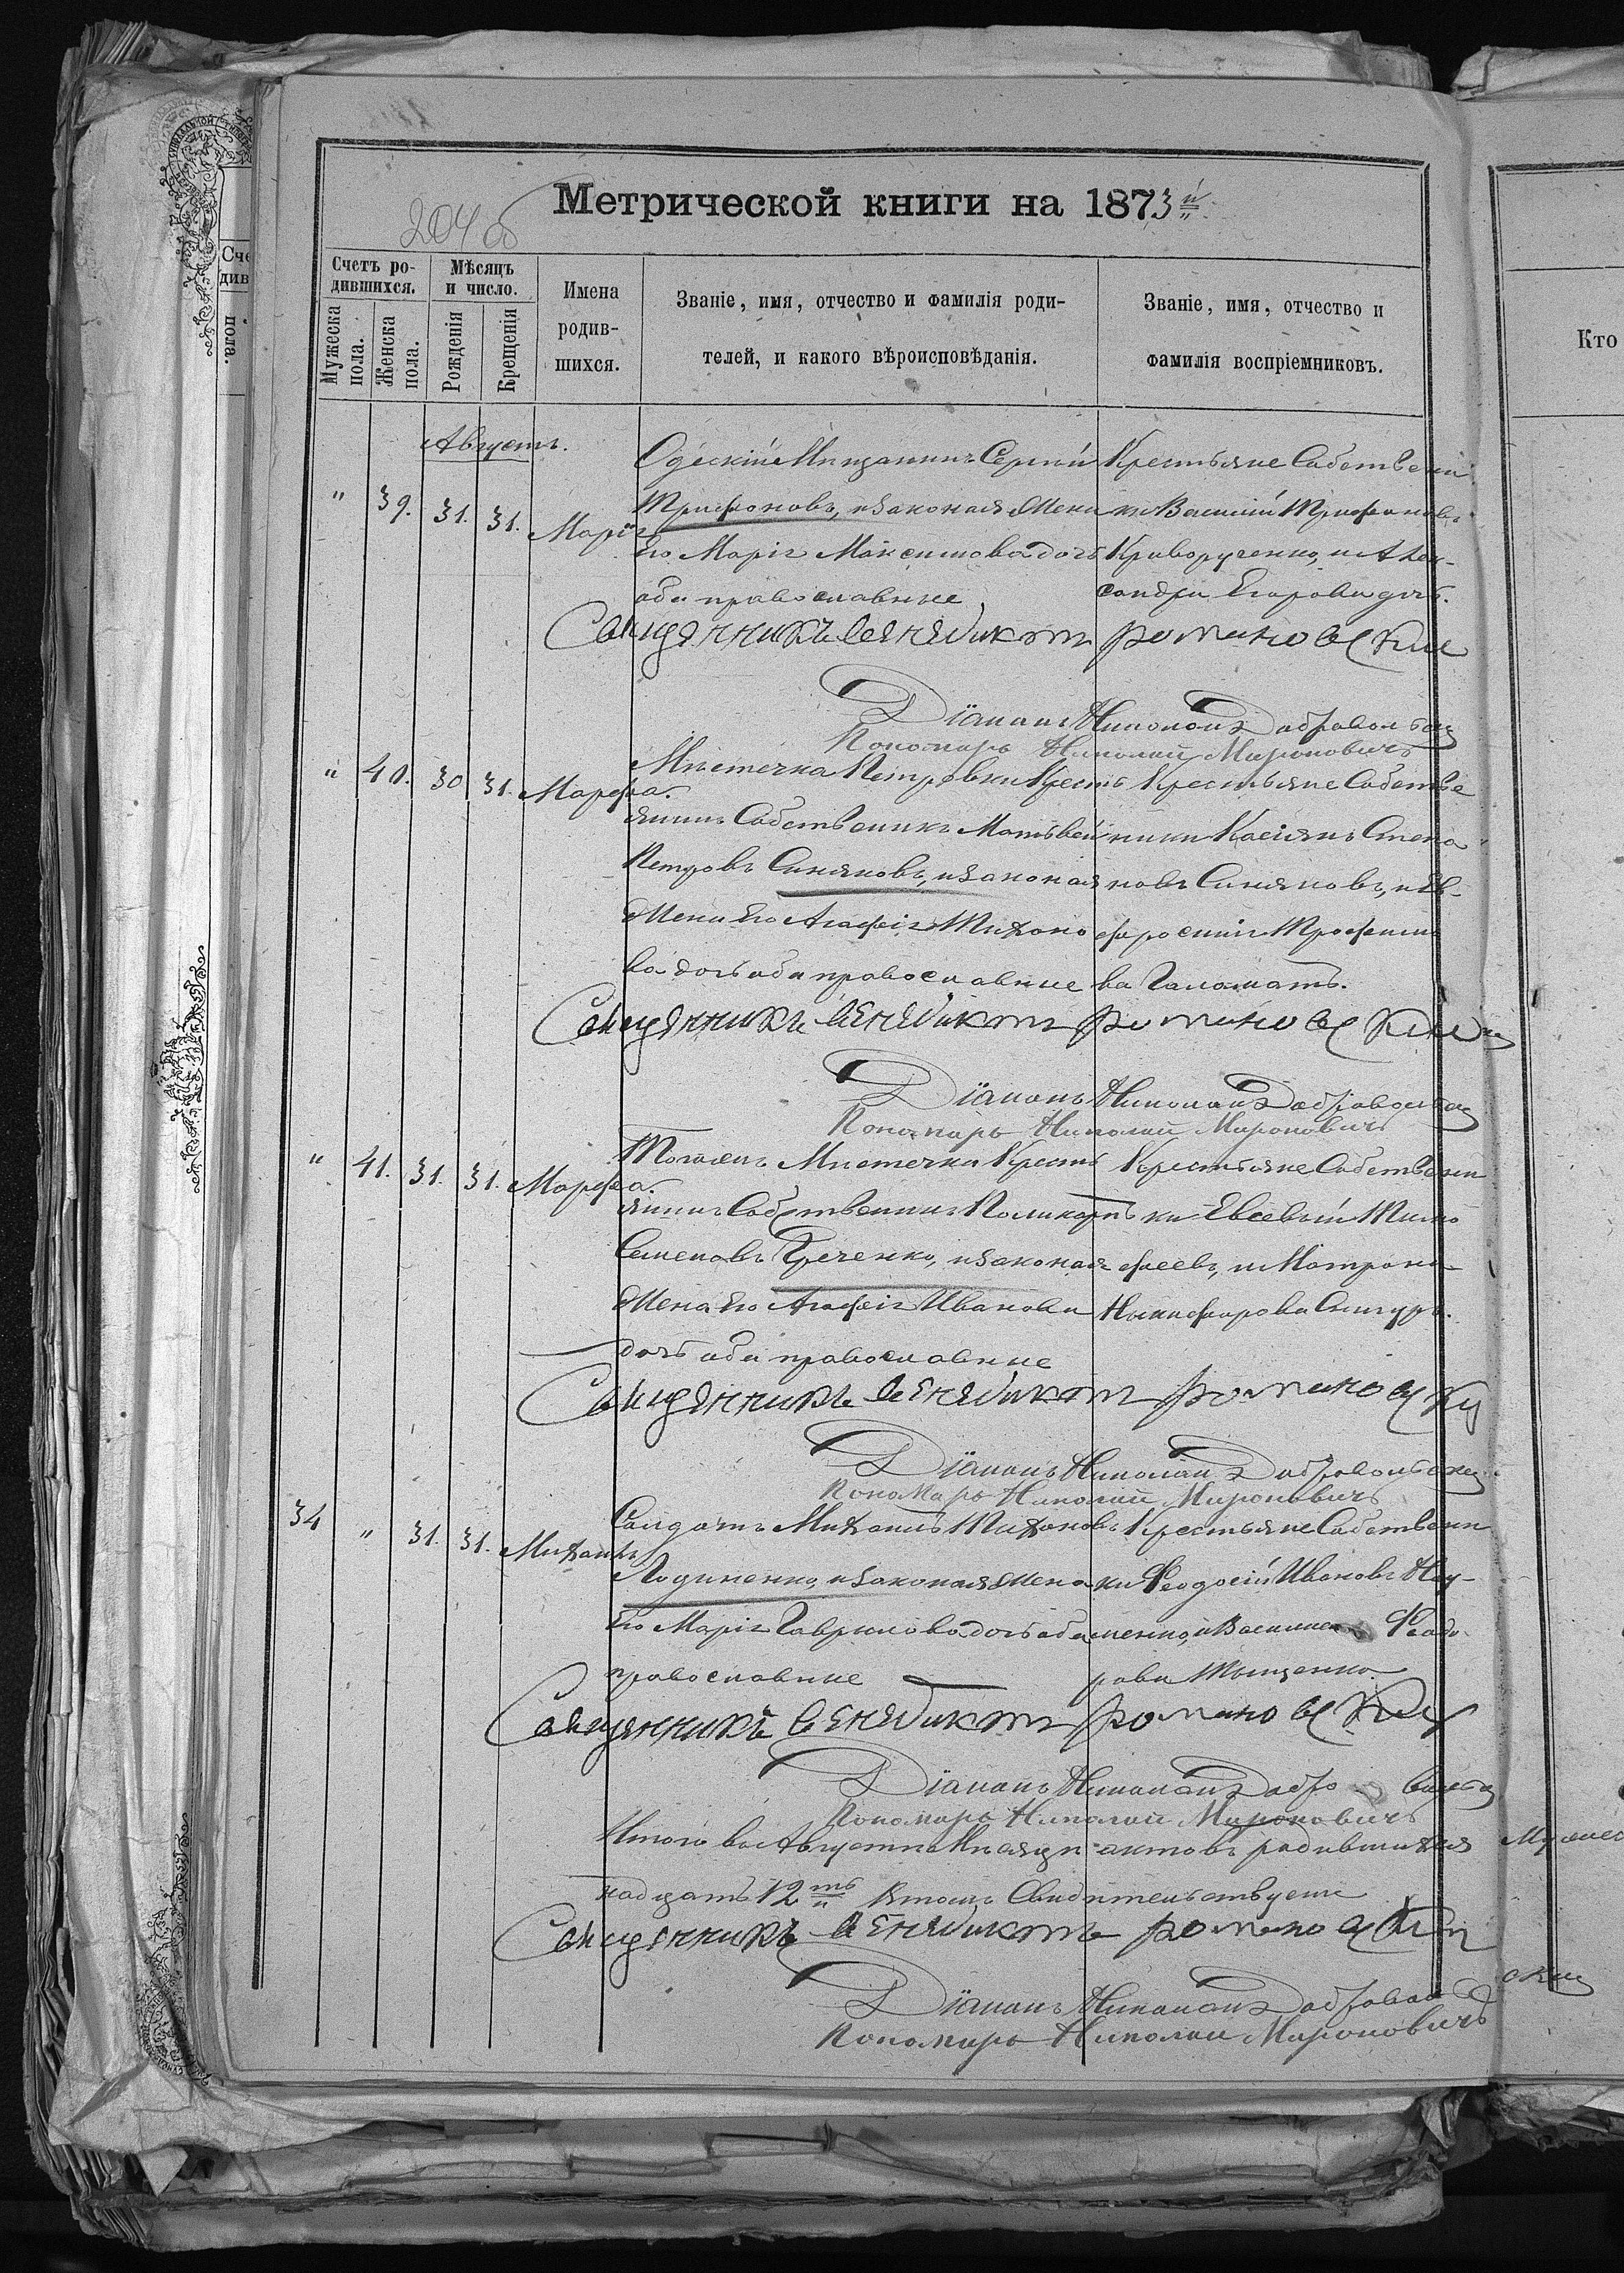 204 об
Метрической книги на 1873й
Счетъ ро-
дившихся.
Мѣсяцъ
и число.
Мужеска
пола.
Женска
пола.
Рожденія
Крещенія
Имена
родив-
шихся.
Званіе, имя, отчество и фамилія роди-
телей, и какого вѣроисповѣданія.
Званіе, имя, отчество и
фамилія воспріемниковъ.
Кто
Августъ.
" 39. 31. 31. Марія
Одескій Мищанинъ Сергѣй
Трифоновъ, изаконая Жена
Его Марія Максимова дочь
оба православные
Крестьяне Собствени
ки Василій Трифоновъ
Криворученко, и Алек-
сандра Егорова дочь.
Священникъ Венедиктъ Романовскій
Діаконъ Николай Добровольскі
Пономарь Николай Мироновичъ
" 40. 30 31. Марфа.
Мистечка Петровки Кресть
янинъ Собственикъ Матвей
Петровъ Синяковъ, изаконая
Жена Его Агафія Тихоно
ва дочь оба православные
Крестьяне Собстве
ники Касіянъ Степа
новъ Синяковъ, и Ев-
фросинія Трофимо
ва Галоматъ.
Священникъ Венедиктъ Романовскій
Діаконъ Николай Добровольскі
Пономарь Николай Мироновичъ
" 41. 31. 31. Марфа.
Тогожъ Мистечка Кресть
янинъ Собственикъ Поликарпъ
Семеновъ Греченко, изаконая
Жена Его Агафія Иванова
дочь оба православные
Крестьяне Собствени
ки Евсевый Тимо
феевъ, и Матрона
Никифорова
Священникъ Венедиктъ Романовскі
Діаконъ Николай Добровольскі
Пономарь Николай Мироновичъ
34 " 31. 31. Михаилъ
Солдатъ Михаилъ Тихоновъ
изаконая Жена
Его Марія Гаврилова дочь оба
православные
Крестьяне Собствени
ки Феодосій Ивановъ Нау-
менко, и Василиса Феодо
рова Тыщенко
Священникъ Венедиктъ Романовскі
Діаконъ Николай Добровольс
Пономарь Николай Мироновичъ
Итого во Августе Мисяце актовъ родившихся Мужес
надцать 12ть Втомъ Свидительствуемъ
Священникъ Венедиктъ Романовскій
Діаконъ Николай Доброволь скій
Пономарь Николай Мироновичъ